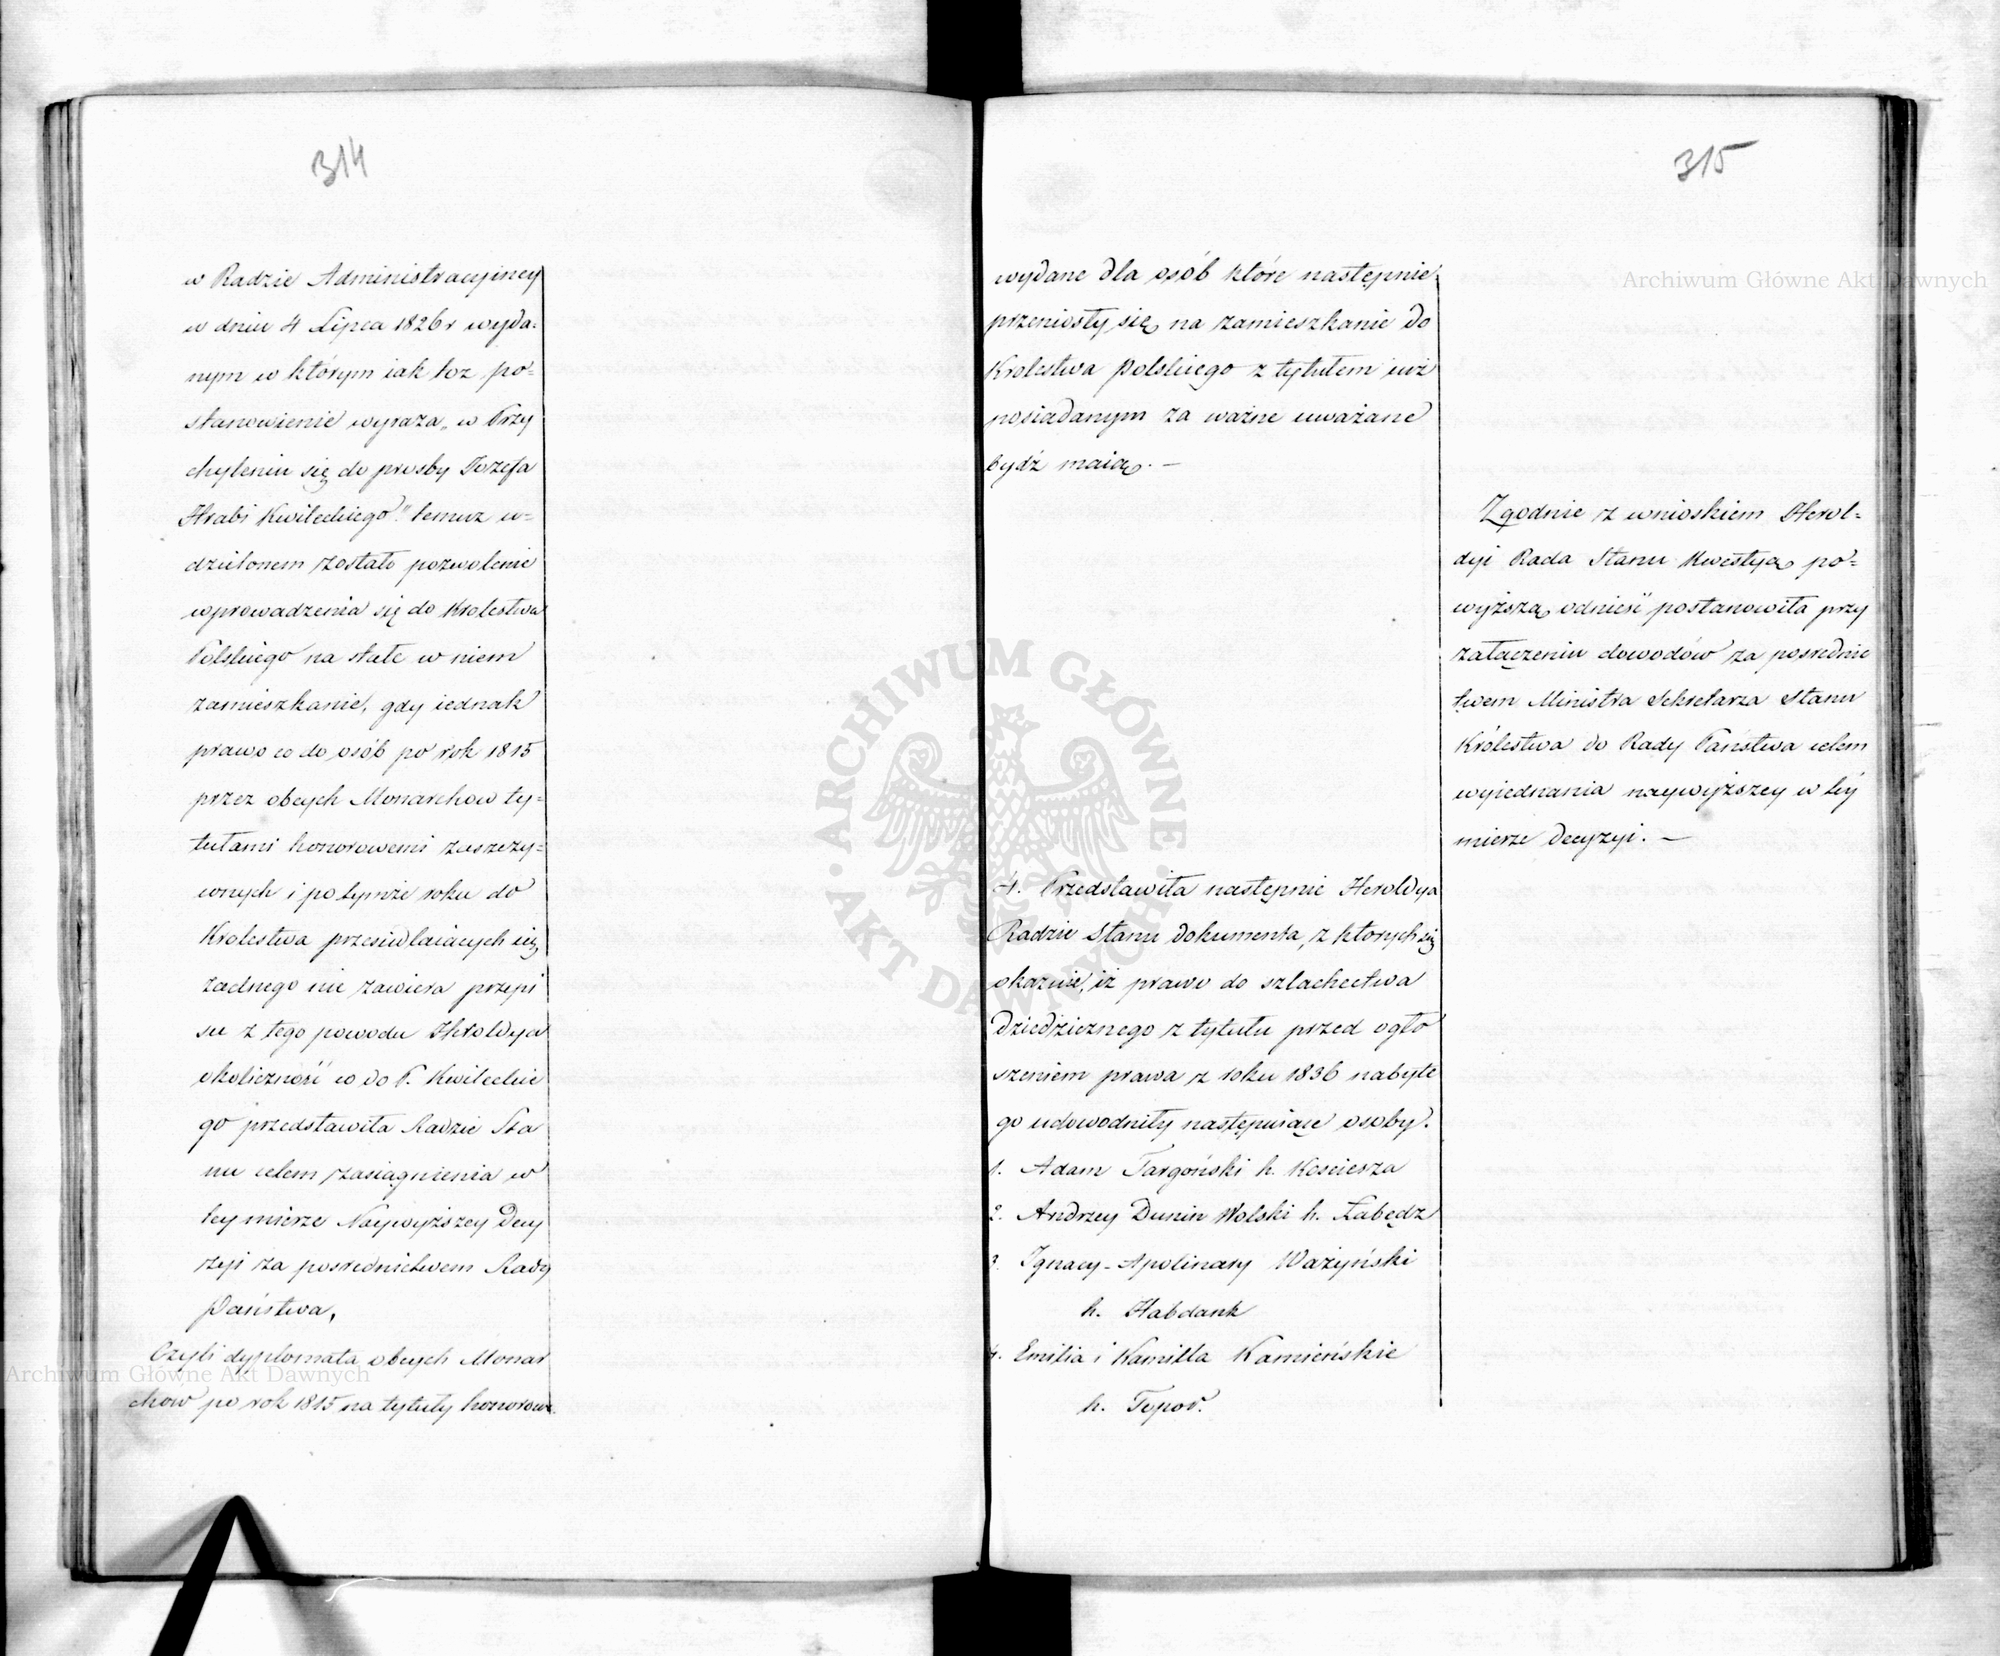 314
w Radzie Administracyiney
w dniu 4 Lipca 1826 r wyda=
nym w którym iak toz po=
stanowienie wyraza „w Przy
chyleniu się do prosby Jozefa
Hrabi Kwileckiego." temuz u=
dzielonem zostało pozwolenie
wprowadzenia się do Krolestwa
Polskiego na stałe w niem
zamieszkanie, gdy iednak
prawo co do osób po rok 1815
przez obcych Monarchow ty=
tułami honorowemi zaszczy=
conych i po tymże roku do
Krolestwa przesiedlaiących się
żadnego nie zawiera przepi
su z tego powodu Heroldya
okoliczność co do P. Kwileckie
go przedstawiła Radzie Sta
nu celem zasiągnienia w
tey mierze Naywyższey Decy
zyi za posrednictwem Rady
Państwa,
Czyli dyplomata obcych Monar
chow po rok 1815 na tytuły honorowe
315
wydane dla osób które następnie
przeniosły się na zamieszkanie do
Krolestwa Polskiego z tytułem iuż
posiadanym za ważne uważane
bydź maią. —
Zgodnie z wnioskiem Herol=
dyi Rada Stanu Kwestyą po=
wyższą odnieść postanowiła przy
załączeniu dowodów za posrednic
twem Ministra Sekretarza Stanu
Królestwa do Rady Państwa celem
wyiednania naywyższey w téy
mierze decyzyi. —
4. Przedstawiła następnie Heroldya
Radzie Stanu dokumenta, z których się
okazuie, iż prawo do szlachectwa
dziedzicznego z tytułu przed ogło
szeniem prawa z roku 1836 nabyte
go udowodniły następuiące osoby.
1. Adam Targoński h. Kosciesza
2. Andrzey Dunin Wolski h. Łabędz
3. Ignacy-Apolinary Ważyński
h. Habdank
4. Emilia i Kamilla Kamieńskie
h. Topor.
ARCHIWUM GŁÓWNE
AKT DAWNYCH
Archiwum Główne Akt Dawnych
Archiwum Główne Akt Dawnych